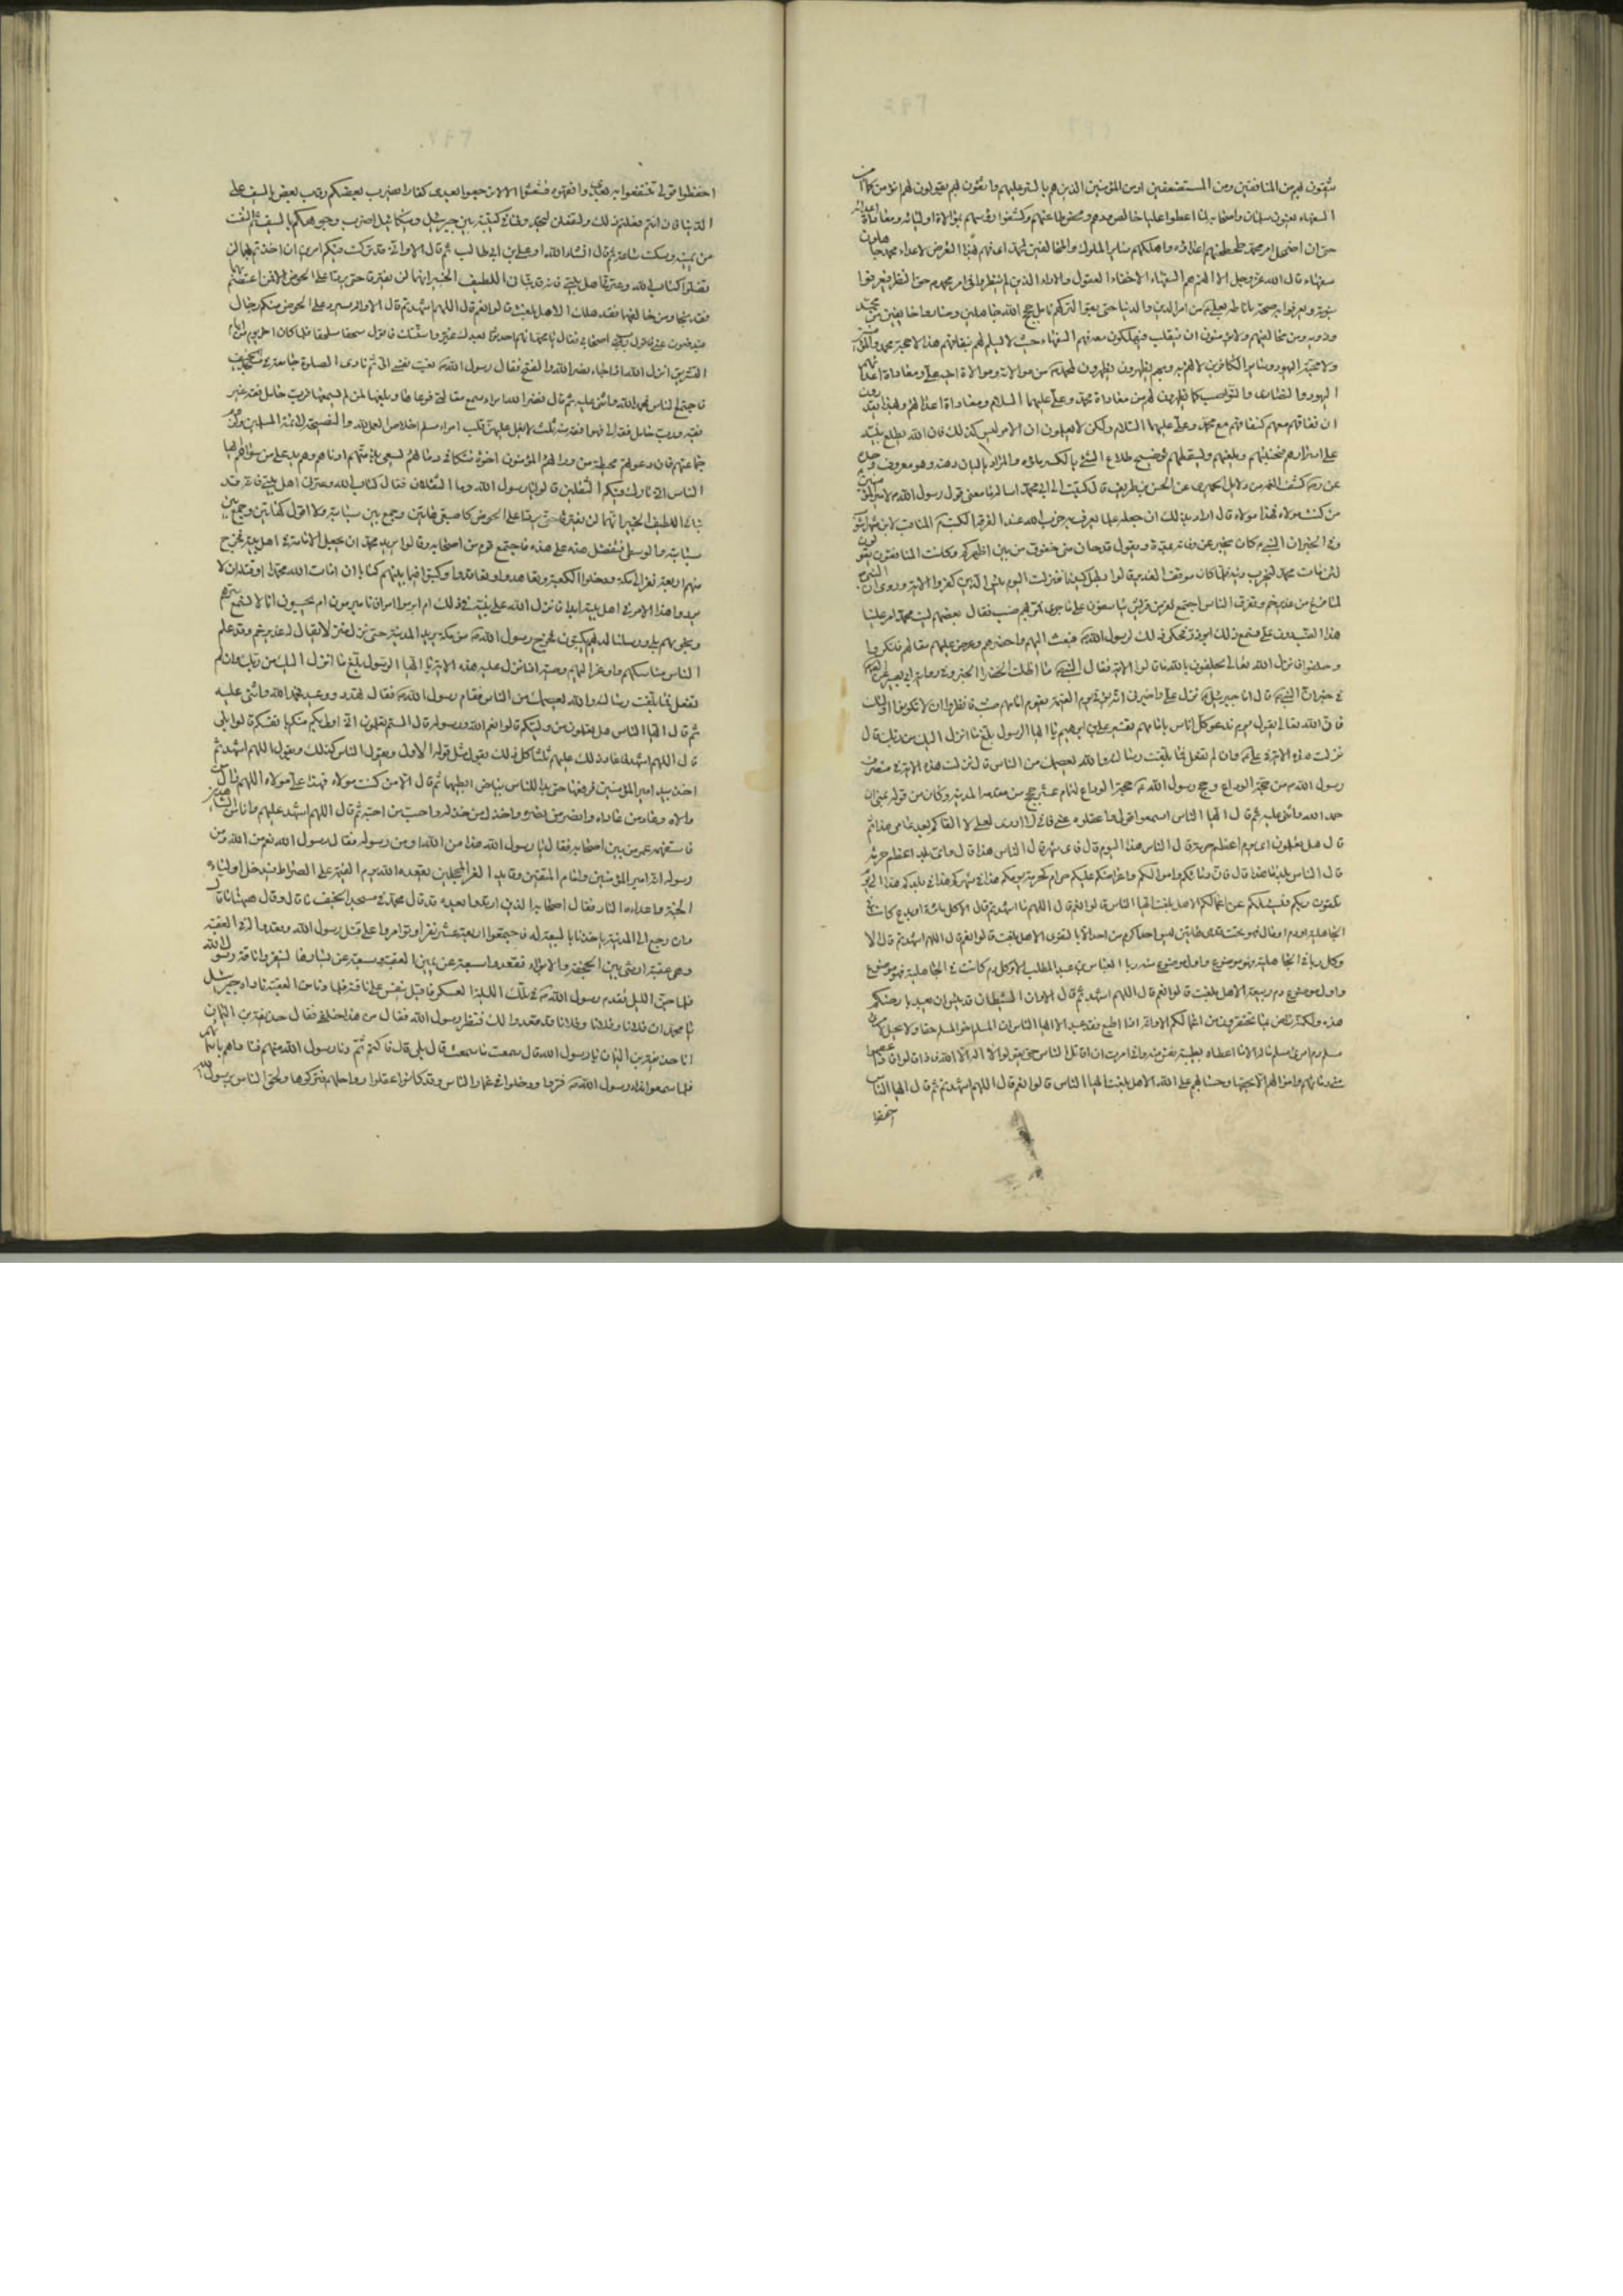 يتقون لهم من المنافقين ومن المستضعفين او من المؤمنين الذين هم بالستر عليهم واثقون لهم يقولون لهم انؤمن كما آمن
السفهاء يعنون سلمان واصحابه لما اعطوا عليا خالص ودهم ومحض طاعتهم وكشفوا رؤسهم بموالاة اوليائه ومعاداة اعدائه
حتى ان اضمحل امر محمد طحطحهم اعداؤه واهلكهم سائر الملوك والمخالفين لمحمد اى فهم بهذا التعرض لاعداء محمد جاهلون
سفهاء قال الله عز وجل الا انهم هم السفهاء الاخفاء العقول والاراء الذين لم ينظروا فى امر محمد حق النظر فيعرفوا
نبوته ويعرفوا به صحة ما ناطه بعلى من امر الدين والدنيا حتى بقوا لتركهم تامل حجج الله جاهلين وصاروا خائفين من محمد
وذويه ومن مخالفيهم ولا يؤمنون ان ينقلب فيهلكون معه فهم السفهاء حيث لا يسلم لهم بنفاقهم هذا لا محبة محمد والمؤمنين
ولا محبة اليهود وسائر الكافرين لانهم به وبهم يظهرون لمحمد من موالاته وموالاة اخيه على ومعاداة اعدائهم
اليهود والنصارى والنواصب كما يظهرون لهم من معاداة محمد وعلى عليهما السلام ومعاداة اعدائهم وبهذا يقدرون
ان نفاقهم معهم كنفاقهم مع محمد وعلى عليهما السلام ولكن لا يعلمون ان الامر ليس كذلك فان الله يطلع نبيه
على اسرارهم فيخسئهم ويلعنهم ويسقطهم توضيح طلاع الشئ بالكسر ملؤه
عن كشف الغمة من دلائل الحميرى عن الحسن بن طريف قال كتبت الى ابى محمد اساله ما معنى قول رسول الله لامير المؤمنين
من كنت مولاه فهذا مولاه قال اراد بذلك ان جعله علما يعرف به حزب الله عند الفرقة الكتب المناقب لابن شهراشوب
وفى الخبر ان النبى كان يخبر عن وفاته بمدة ويقول قد حان منى خفوق من بين اظهركم وكانت المنافقون يقولون
لئن مات محمد لنخرب دينه فلما كان موقف الغدير قالوا بطل كيدنا فنزلت اليوم يئس الذين كفروا الاية وروى ان النبى
لما فرغ من غدير خم وتفرق الناس اجتمع نفر من قريش يتاسفون على ما جرى فمر بهم ضب فقال بعضهم ليت محمدا امر علينا
هذا الضب دون على فسمع ذلك ابو ذر فحكى ذلك لرسول الله فبعث اليهم واحضرهم وعرض عليهم مقالهم فانكروا
وحلفوا فانزل الله تعالى يحلفون بالله ما قالوا الاية فقال النبى ما اظلت الخضراء الخبر وفى رواية ابى بصير
فى خبر ان النبى قال اما جبرئيل نزل على واخبرنى انه يؤتى يوم القيمة بقوم امامهم ضب فانظروا ان لا تكونوا اولئك
فان الله تعالى يقول يوم ندعو كل اناس بامامهم تفسير على بن ابراهيم يا ايها الرسول بلغ ما انزل اليك من ربك قال
نزلت هذه الاية فى على وان لم تفعل فما بلغت رسالته والله يعصمك من الناس قال نزلت هذه الاية فى منصرف
رسول الله من حجة الوداع وحج رسول الله حجة الوداع لتمام عشر حجج من مقدمه المدينة وكان من قوله بمنى ان
حمد الله واثنى عليه ثم قال ايها الناس اسمعوا قولى واعقلوه عنى فانى لا ادرى لعلى لا القاكم بعد عامى هذا ثم
قال هل تعلمون اى يوم اعظم حرمة قال الناس هذا اليوم قال فاى شهر قال الناس هذا قال واى بلد اعظم حرمة
قال الناس بلدنا هذا قال فان دمائكم واموالكم واعراضكم عليكم حرام كحرمة يومكم هذا فى شهركم هذا فى بلدكم هذا الى يوم
تلقون ربكم فيسئلكم عن اعمالكم الا هل بلغت ايها الناس قالوا نعم قال اللهم اشهد ثم قال الا كل ماثرة او بدع كانت فى
الجاهلية او دم او مال فهو تحت قدمى هاتين ليس احد اكرم من احد الا بالتقوى الا هل بلغت قالوا نعم قال اللهم اشهد ثم قال الا
وكل ربا فى الجاهلية فهو موضوع واول موضوع منه ربا العباس بن عبد المطلب الا وكل دم كانت فى الجاهلية فهو موضوع
واول موضوع دم ربيعة الا هل بلغت قالوا نعم قال اللهم اشهد ثم قال الا وان الشيطان قد يئس ان يعبد بارضكم
هذه ولكنه راض بما تحتقرون من اعمالكم الا وانه اذا اطيع فقد عبد الا ايها الناس ان المسلم اخو المسلم حقا ولا يحل لامرئ
مسلم دم امرئ مسلم وماله الا ما اعطاه بطيبة نفس منه وانى امرت ان اقاتل الناس حتى يقولوا لا اله الا الله فاذا قالوها فقد عصموا
منى دمائهم واموالهم الا بحقها وحسابهم على الله الا هل بلغت ايها الناس قالوا نعم قال اللهم اشهد ثم قال ايها الناس
احفظوا
احفظوا قولى تنتفعوا به بعدى وافقهوه تنعشوا الا لا ترجعوا بعدى كفارا يضرب بعضكم رقاب بعض بالسيف على
الدنيا فان انتم فعلتم ذلك ولتفعلن لتجدونى فى كتيبة بين جبرئيل وميكائيل اضرب وجوهكم بالسيف ثم التفت
عن يمينه وسكت ساعة ثم قال انشاء الله او على بن ابيطالب ثم قال الا وانى قد تركت فيكم امرين ان اخذتم بهما لن
تضلوا كتاب الله وعترتى اهل بيتى فانه قد نبأنى اللطيف الخبير انهما لن يفترقا حتى يردا على الحوض الا فمن اعتصم بهما
فقد نجا ومن خالفهما فقد هلك الا هل بلغت قالوا نعم قال اللهم اشهد ثم قال الا وانه سيرد على الحوض منكم رجال
فيدفعون عنى فاقول رب اصحابى فقال يا محمد انهم احدثوا بعدك وغيروا سنتك فاقول سحقا سحقا فلما كان اخر يوم من ايام
التشريق انزل الله اذا جاء نصر الله والفتح فقال رسول الله نعيت الى نفسى ثم نادى الصلوة جامعة فى مسجد الخيف
فاجتمع الناس فحمد الله واثنى عليه ثم قال نضر الله امرءا سمع مقالتى فوعاها وبلغها لمن لم يسمعها فرب حامل فقه غير
فقيه ورب حامل فقه الى من هو افقه منه ثلث لا يغل عليهن قلب امرء مسلم اخلاص العمل لله والنصيحة لائمة المسلمين ولزوم
جماعتهم فان دعوتهم محيطة من ورائهم المؤمنون اخوة تتكافى دماؤهم يسعى بذمتهم ادناهم وهم يد على من سواهم ايها
الناس انى تارك فيكم الثقلين قالوا يا رسول الله وما الثقلان فقال كتاب الله وعترتى اهل بيتى فانه قد
نبأنى اللطيف الخبير انهما لن يفترقا حتى يردا على الحوض كاصبعى هاتين وجمع بين سبابتيه ولا اقول كهاتين وجمع بين
سبابته والوسطى فتفضل هذه على هذه فاجتمع قوم من اصحابه وقالوا يريد محمد ان يجعل الامامة فى اهل بيته فخرج
منهم اربعة نفر الى مكة ودخلوا الكعبة وتعاهدوا وتعاقدوا وكتبوا فيما بينهم كتابا ان امات الله محمدا او قتل ان لا
يردوا هذا الامر فى اهل بيته ابدا فانزل الله على نبيه فى ذلك ام ابرموا امرا فانا مبرمون ام يحسبون انا لا نسمع سرهم
ونجويهم بلى ورسلنا لديهم يكتبون فخرج رسول الله من مكة يريد المدينة حتى نزل منزلا يقال له غدير خم وقد علم
الناس مناسكهم واوعز اليهم وصيته اذ انزل عليه هذه الاية يا ايها الرسول بلغ ما انزل اليك من ربك وان لم
تفعل فما بلغت رسالته والله يعصمك من الناس فقام رسول الله فقال تهديد ووعيد فحمد الله واثنى عليه
ثم قال ايها الناس هل تعلمون من وليكم قالوا نعم الله ورسوله قال الستم تعلمون انى اولى بكم منكم بانفسكم قالوا بلى
قال اللهم اشهد فاعاد ذلك عليهم ثلثا كل ذلك يقول مثل قوله الاول ويقول الناس كذلك ويقول اللهم اشهد ثم
اخذ بيد امير المؤمنين فرفعها حتى بدا للناس بياض ابطيهما ثم قال الا من كنت مولاه فهذا على مولاه اللهم وال من
والاه وعاد من عاداه وانصر من نصره واخذل من خذله واحب من احبه ثم قال اللهم اشهد عليهم وانا من الشاهدين
فاستفهمه عمر من بين اصحابه فقال يا رسول الله هذا من الله او من رسوله فقال رسول الله نعم من الله ومن
رسوله انه امير المؤمنين وامام المتقين وقايد الغر المحجلين يقعده الله يوم القيمة على الصراط فيدخل اولياءه
الجنة واعداءه النار فقال اصحابه الذين ارتدوا بعده قد قال محمد فى مسجد الخيف ما قال وقال ههنا ما قال
وان رجع الى المدينة ياخذنا بالبيعة له فاجتمعوا اربعة عشر نفرا وتوامروا على قتل رسول الله وقعدوا له فى العقبة
وهى عقبة ارشى بين الجحفة والابواء فقعدوا سبعة عن يمين العقبة وسبعة عن يسارها لينفروا ناقة رسول الله
فلما جن الليل تقدم رسول الله فى تلك الليلة العسكر فاقبل ينعس على ناقته فلما دنا من العقبة ناداه جبرئيل
يا محمد ان فلانا وفلانا وفلانا قد قعدوا لك فنظر رسول الله فقال من هذا خلفى فقال حذيفة بن اليمان
انا حذيفة بن اليمان يا رسول الله قال سمعت ما سمعت قال بلى قال فاكتم ثم دنا رسول الله منهم فناداهم باسمائهم
فلما سمعوا نداء رسول الله فروا ودخلوا فى غمار الناس وقد كانوا عقلوا رواحلهم فتركوها ولحق الناس برسول الله